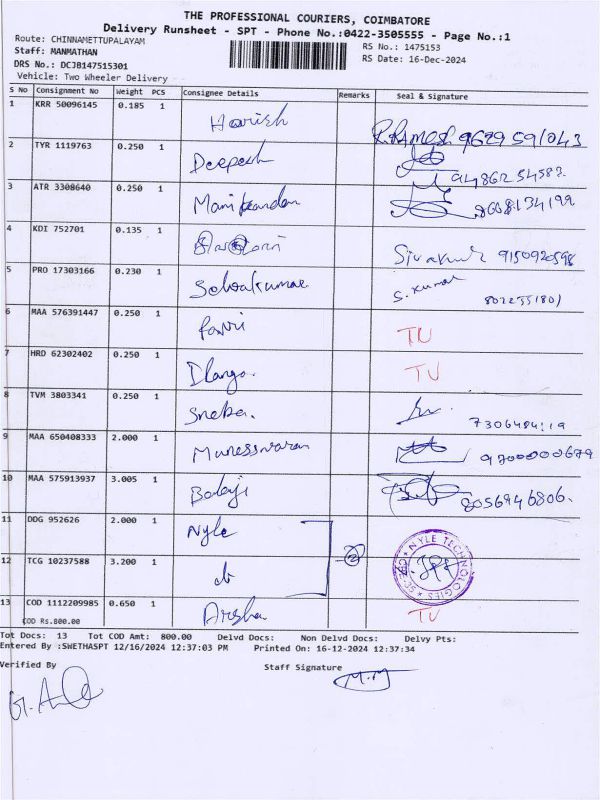 THE PROFESSIONAL COURIERS, COIMBATORE
Delivery Runsheet - SPT - Phone No.:0422-3505555 - Page No.:1
Route: CHINNAMETTUPALAYAM
Staff: MANMATHAN
RS No.: 1475153
DRS No.: DCJB147515301
RS Date: 16-Dec-2024
Vehicle: Two Wheeler Delivery
S No Consignment No Weight PCS Consignee Details Remarks Seal & Signature
1 KRR 50096145 0.185 1 Harish R.Ramesh 9629591043
2 TYR 1119763 0.250 1 Deepesh 9486254583
3 ATR 3308640 0.250 1 Manikandan 8668134199
4 KDI 752701 0.135 1 Sivakumar 9150920598
5 PRO 17303166 0.230 1 Selvakumar S.Kumar 8022551801
6 MAA 576391447 0.250 1 TU
7 HRD 62302402 0.250 1 Ilango. TU
8 TVM 3803341 0.250 1 Sneha.
9 MAA 650408333 2.000 1 Muneeswaran 9700000679
10 MAA 575913937 3.005 1 Balaji 8056946806.
11 DDG 952626 2.000 1 Nyle
12 TCG 10237588 3.200 1 do 2 NYLE TECHNOLOGIES
13 COD 1112209985 0.650 1 TU
COD Rs.800.00
Tot Docs: 13 Tot COD Amt: 800.00 Delvd Docs: Non Delvd Docs: Delvy Pts:
Entered By :SWETHASPT 12/16/2024 12:37:03 PM Printed On: 16-12-2024 12:37:34
Verified By Staff Signature
M.M